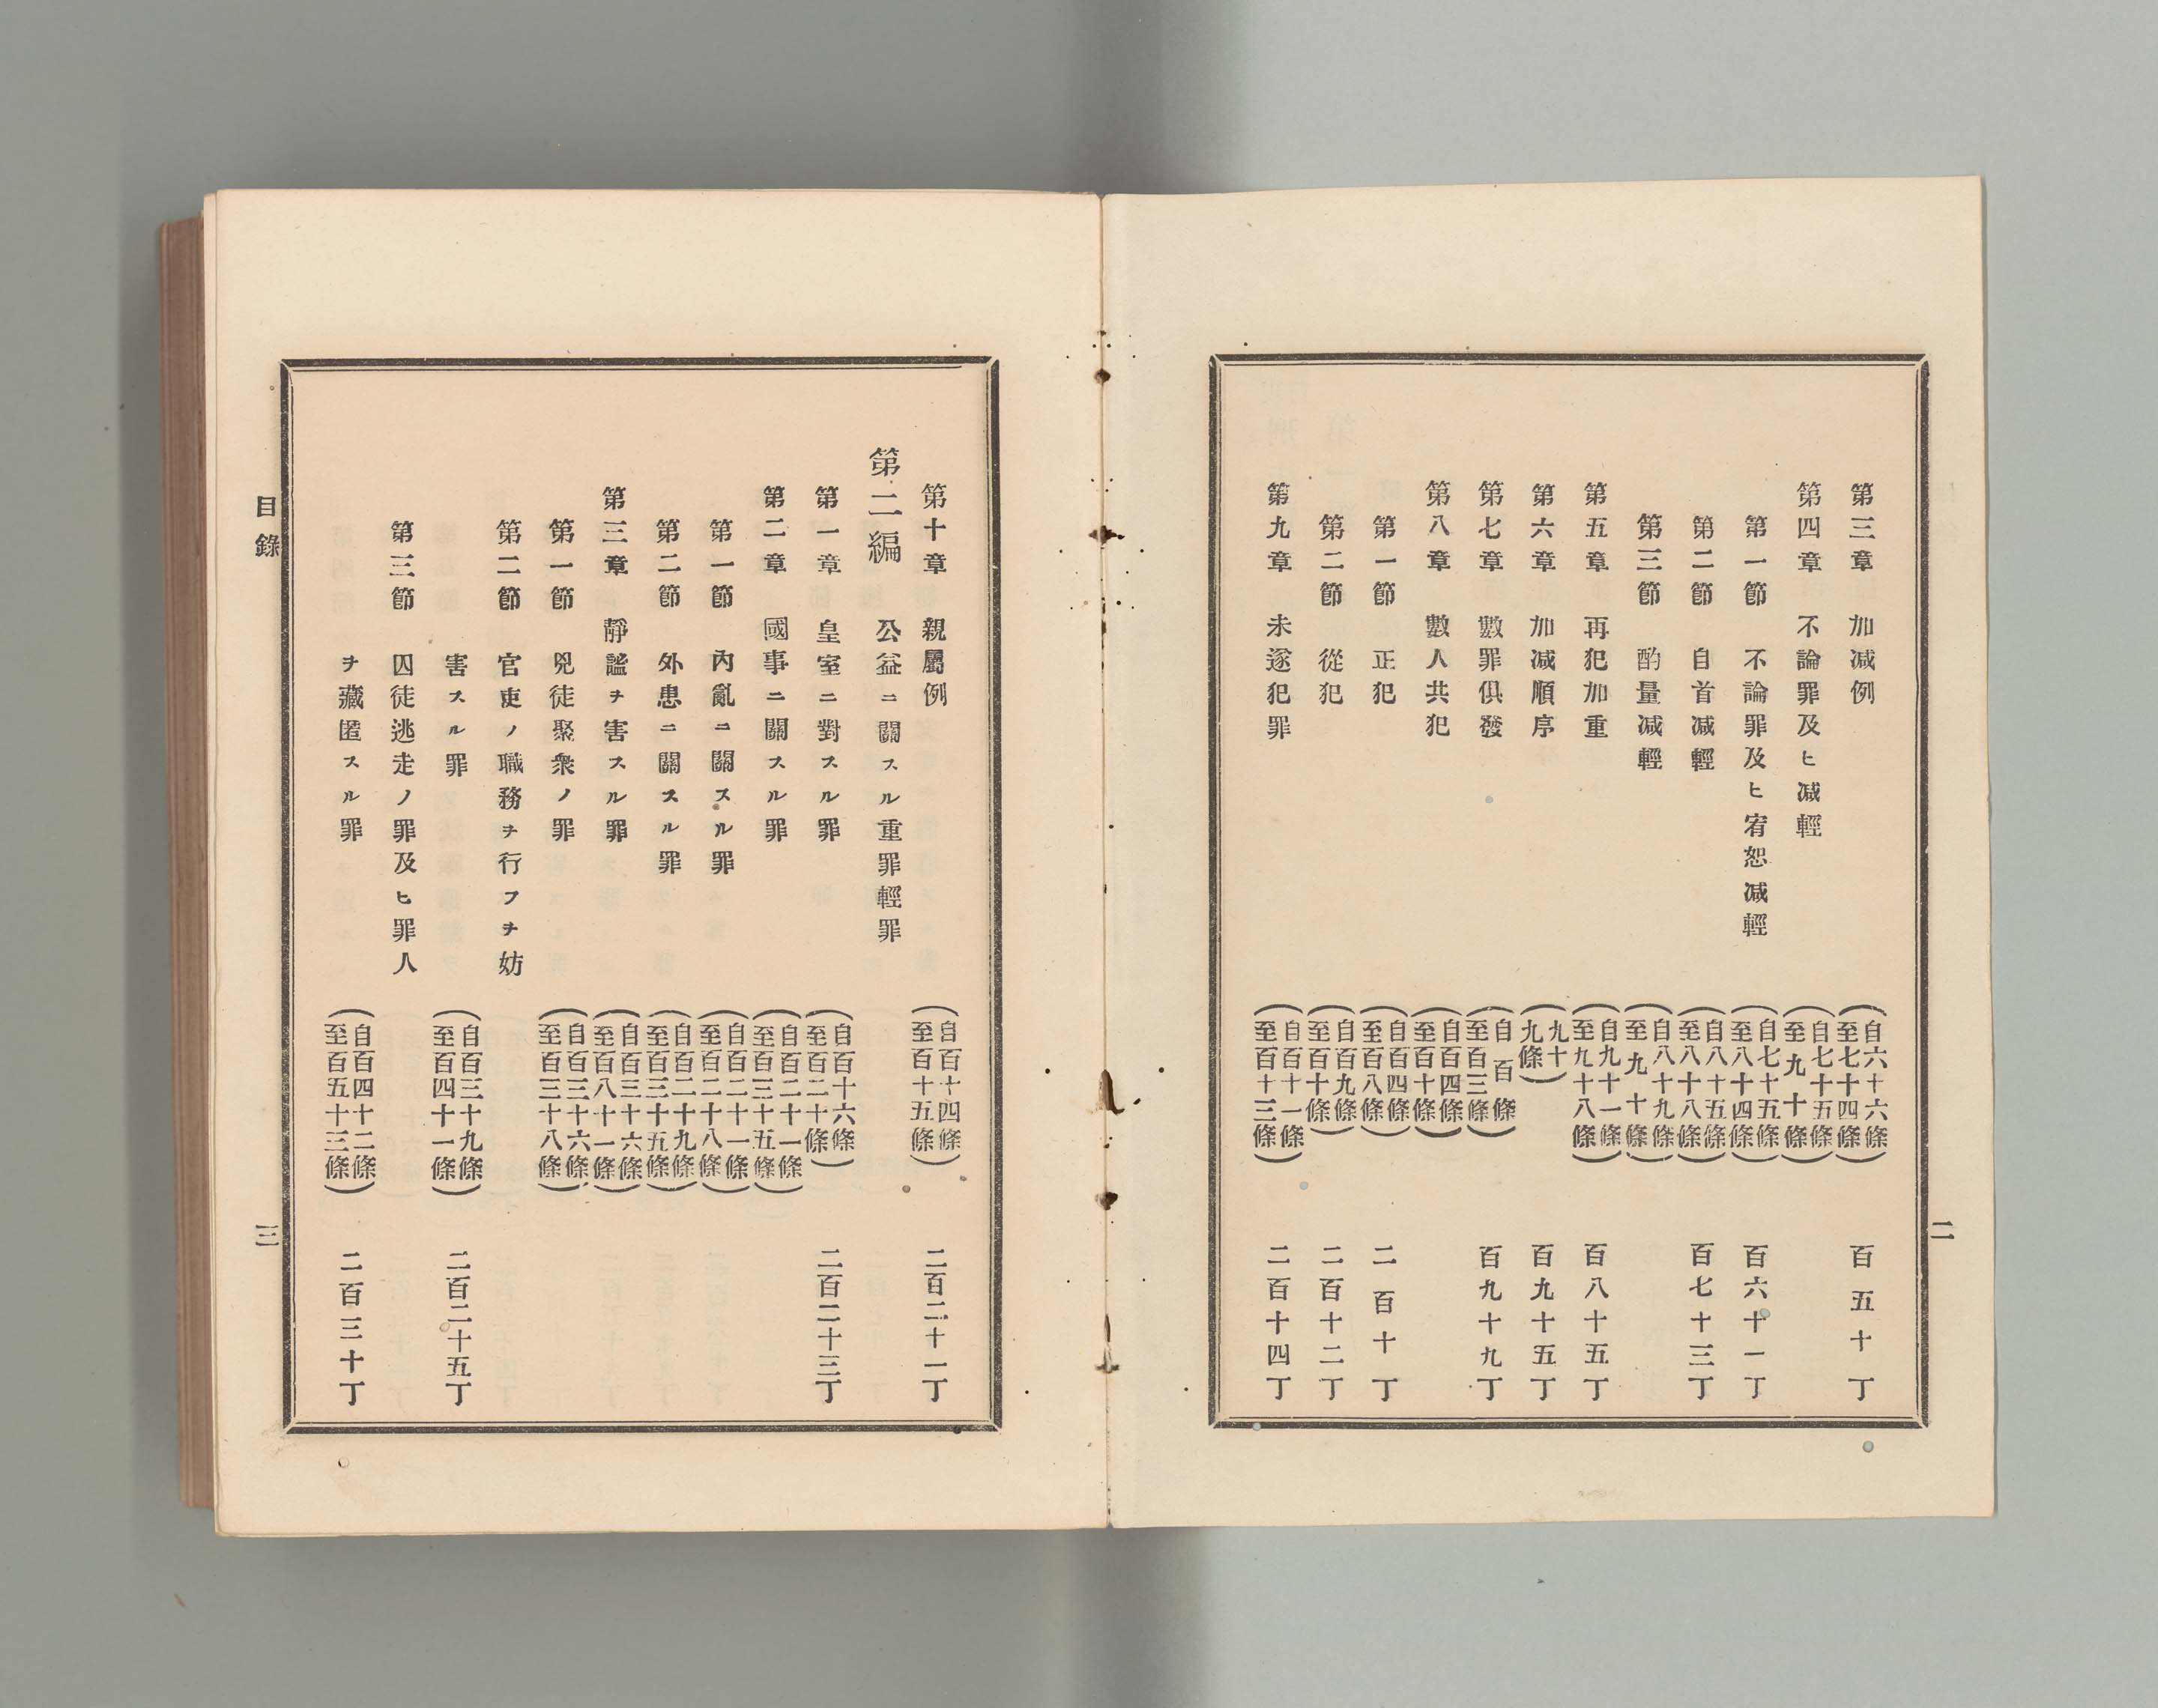 第三章 加减例 (自六十六條至七十四條) 百五十丁
第四章 不論罪及ヒ减輕 (自七十五條至九十條)
第一節 不論罪及ヒ宥恕减輕 (自七十五條至八十四條) 百六十一丁
第二節 自首减輕 (自八十五條至八十八條) 百七十三丁
第三節 酌量减輕 (自八十九條至九十條)
第五章 再犯加重 (自九十一條至九十八條) 百八十五丁
第六章 加减順序 (九十九條) 百九十五丁
第七章 數罪俱發 (自百條至百三條) 百九十九丁
第八章 數人共犯 (自百四條至百十條)
第一節 正犯 (自百四條至百八條) 二百十丁
第二節 從犯 (自百九條至百十條) 二百十二丁
第九章 未遂犯罪 (自百十一條至百十三條) 二百十四丁
二
第十章 親屬例 (自百十四條至百十五條) 二百二十一丁
第二編 公益ニ關スル重罪輕罪
第一章 皇室ニ對スル罪 (自百十六條至百二十條) 二百二十三丁
第二章 國事ニ關スル罪 (自百二十一條至百三十五條)
第一節 內亂ニ關スル罪 (自百二十一條至百二十八條)
第二節 外患ニ關スル罪 (自百二十九條至百三十五條)
第三章 靜謐ヲ害スル罪 (自百三十六條至百八十一條)
第一節 兇徒聚衆ノ罪 (自百三十六條至百三十八條)
第二節 官吏ノ職務ヲ行フヲ妨
害スル罪 (自百三十九條至百四十一條) 二百二十五丁
第三節 囚徒逃走ノ罪及ヒ罪人
ヲ藏匿スル罪 (自百四十二條至百五十三條) 二百三十丁
目錄
三